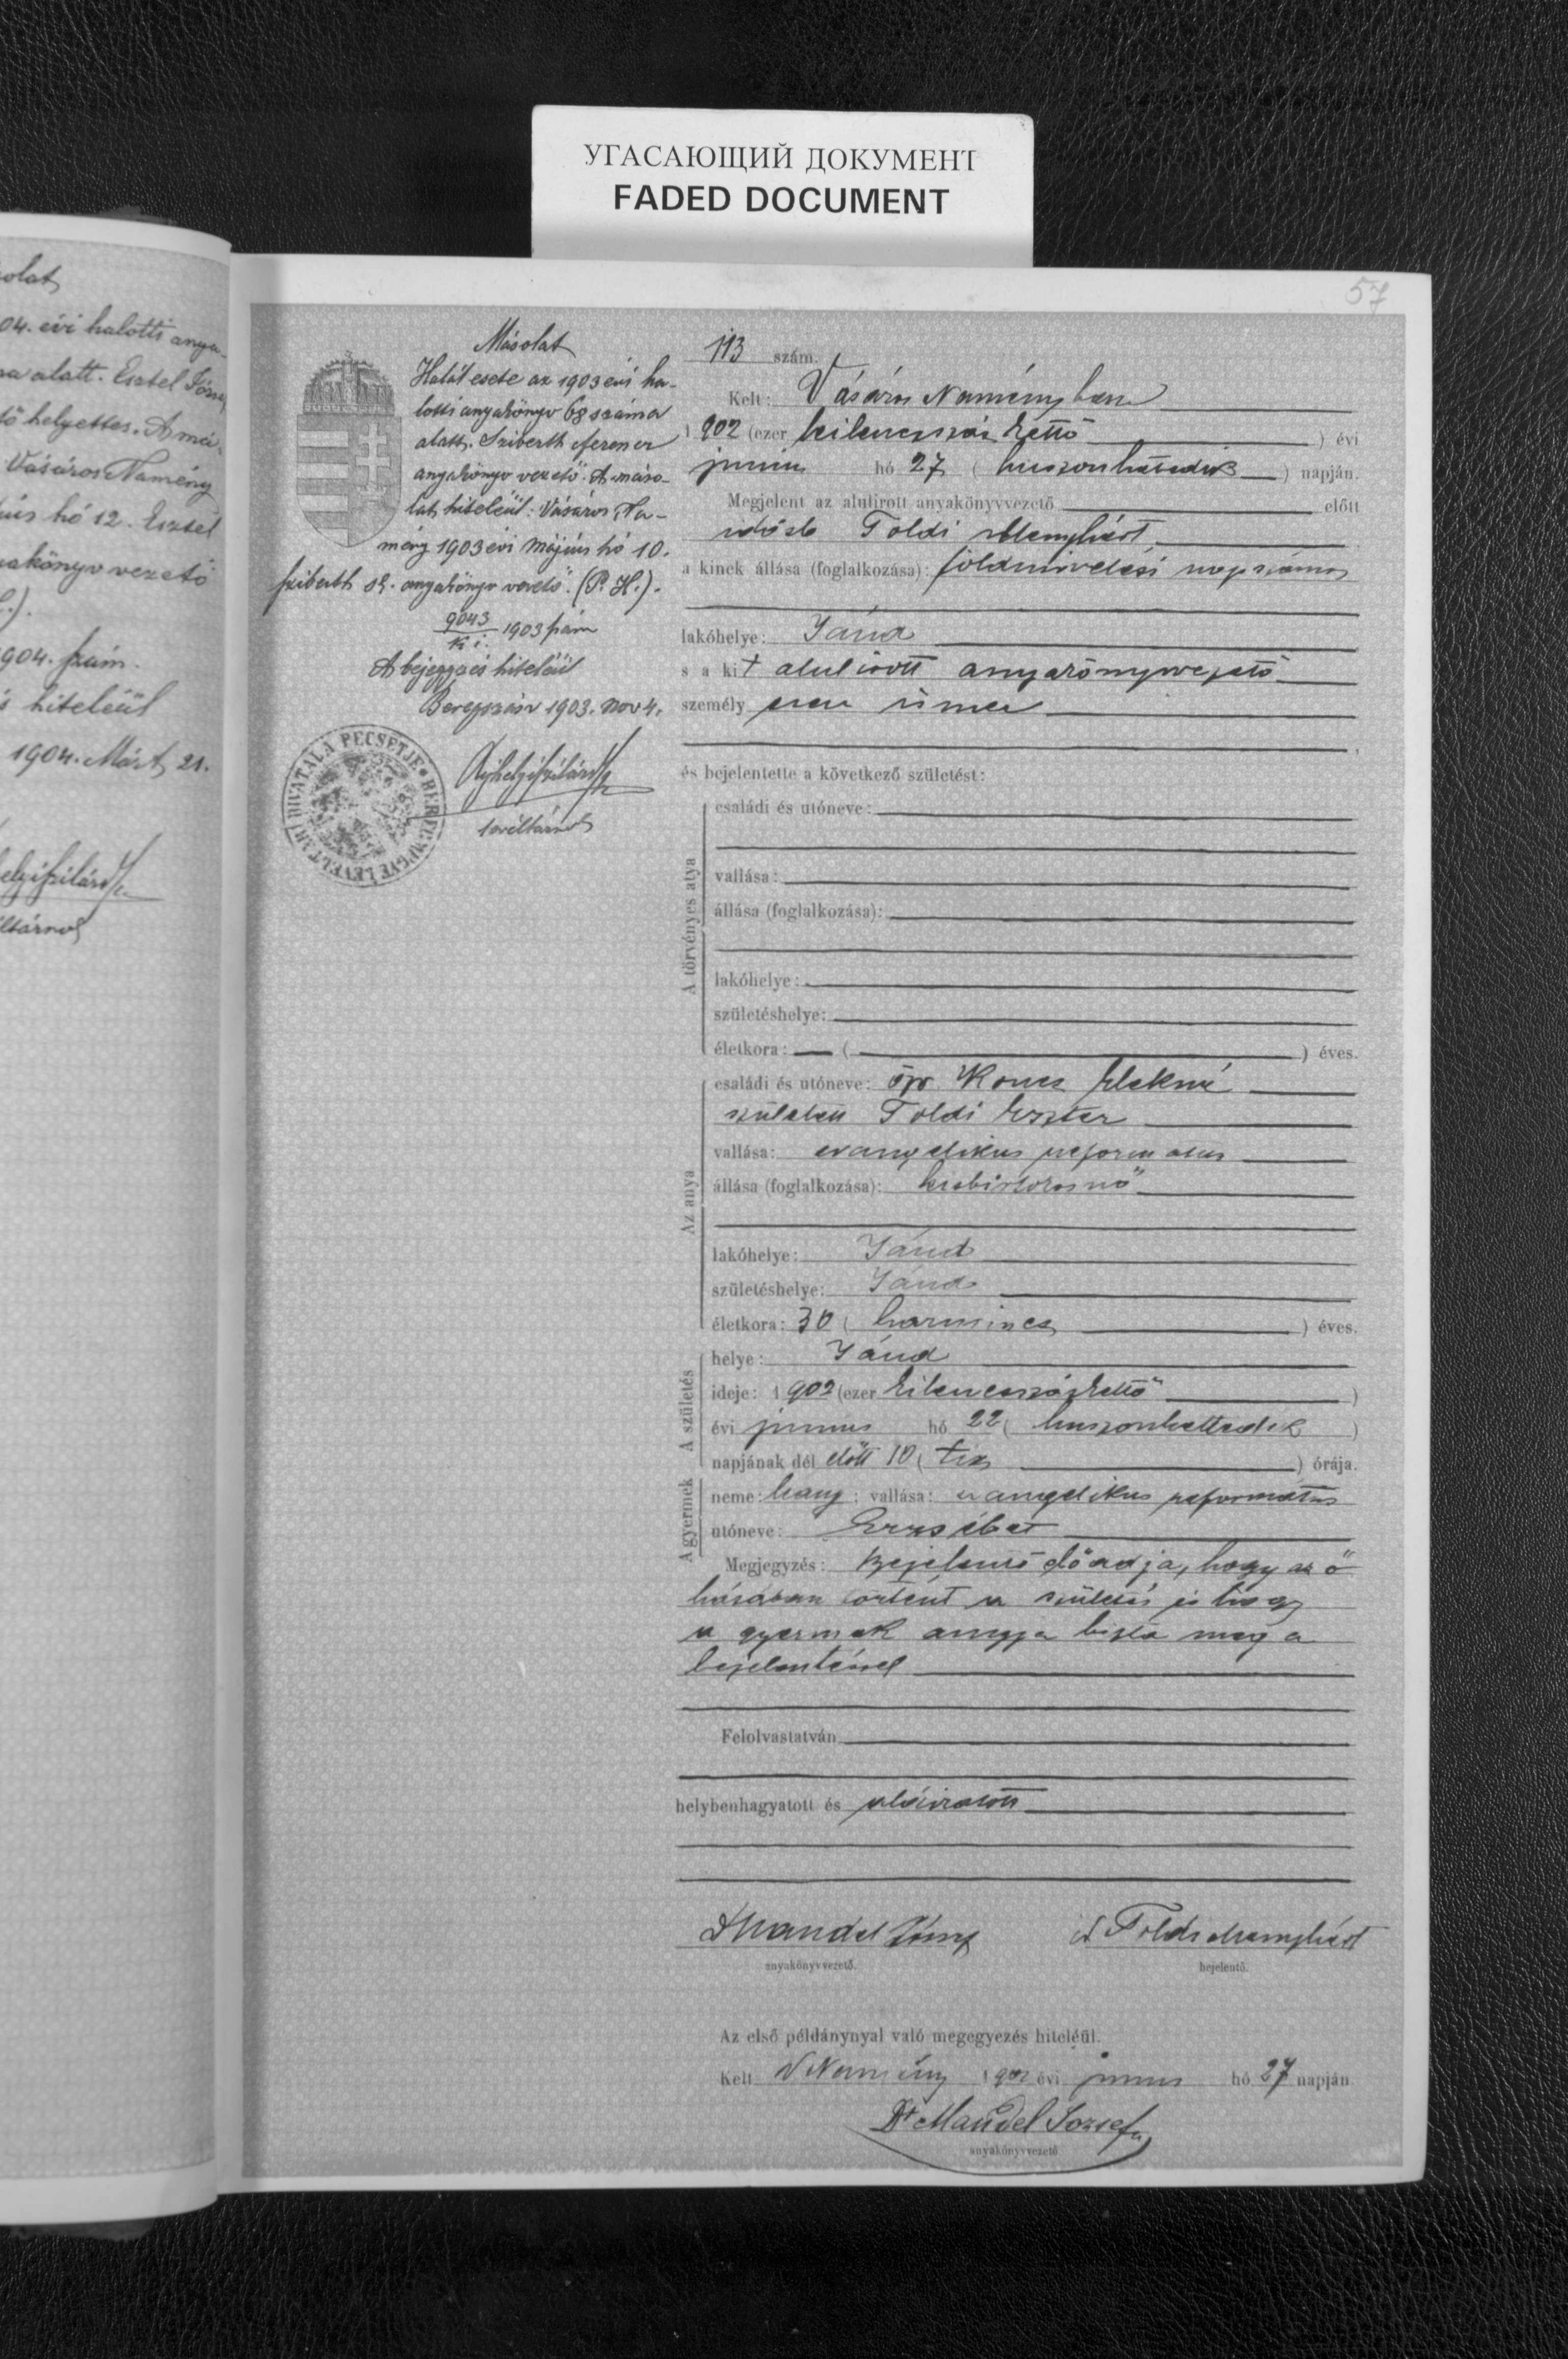 УГАСАЮЩИЙ ДОКУМЕНТ
FADED DOCUMENT
57
olat
04. évi halotti anya-
a alatt. Esztel
tő helyettes. A má-
Vásáros Namény
ius hó 12. Esztel
akönyv vezető
904. szám.
hiteléül
1904. Márt. 21.
Másolat
Halál esete az 1903 évi ha-
lotti anyakönyv 68 száma
alatt. Sziberth Ferencz
anyakönyv vezető. A máso-
lat hiteléül: Vásáros Na-
mény 1903 évi Május hó 10.
Sziberth sk. anyakönyv vezető. (P. H.).
9043
ki. 1903 szám
A bejegyzés hiteléül
Beregszász 1903. nov 4.
levéltárnok
113 szám.
Kelt: Vásáros Naményban
1902 (ezer kilenczszáz kettő ) évi
junius hó 27 ( huszonhetedik ) napján.
Megjelent az alulirott anyakönyvvezető előtt
idősb Toldi Menyhért
a kinek állása (foglalkozása): földmivelési napszámos
lakóhelye: Jánd
s a kit alulirott anyakönyvvezető
személyesen ismer
és bejelentette a következő születést:
A törvényes atya
családi és utóneve:
vallása:
állása (foglalkozása):
lakóhelye:
születéshelye:
életkora: ( ) éves.
Az anya
családi és utóneve: özv. Koncz Elekné
született Toldi Eszter
vallása: evangelikus reformatus
állása (foglalkozása): kisbirtokosnő
lakóhelye: Jánd
születéshelye: Jánd
életkora: 30 ( harmincz ) éves.
A születés
helye: Jánd
ideje: 1902 (ezer kilenczszázkettő )
évi junius hó 22 ( huszonkettedik )
napjának dél előtt 10 ( tiz ) órája.
A gyermek
neme: leány; vallása: evangelikus református
utóneve: Erzsébet
Megjegyzés: Bejelentő előadja, hogy az ő
házában történt a születés és hogy
a gyermek anyja bizta meg a
bejelentéssel
Felolvastatván
helybenhagyatott és aláiratott
Dr Mandel József
anyakönyvvezető.
id Toldi Menyhért
bejelentő.
Az első példánynyal való megegyezés hiteléül.
Kelt V Namény 1902 évi junius hó 27 napján
Dr Mandel József
anyakönyvvezető